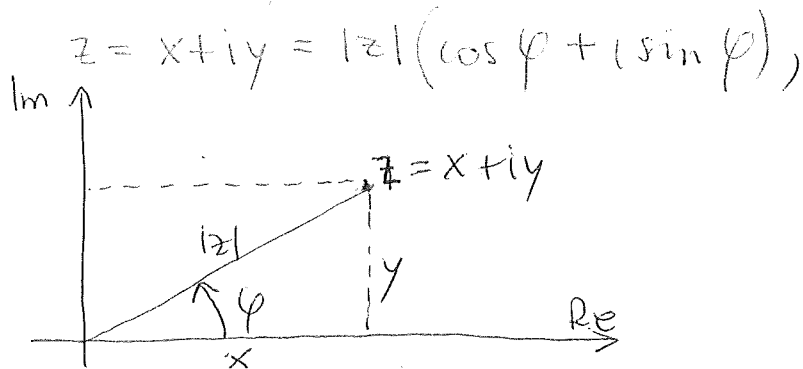 z = x+iy = |z|(cos φ + i sin φ),
Im
z = x+iy
|z|
φ
y
x
Re